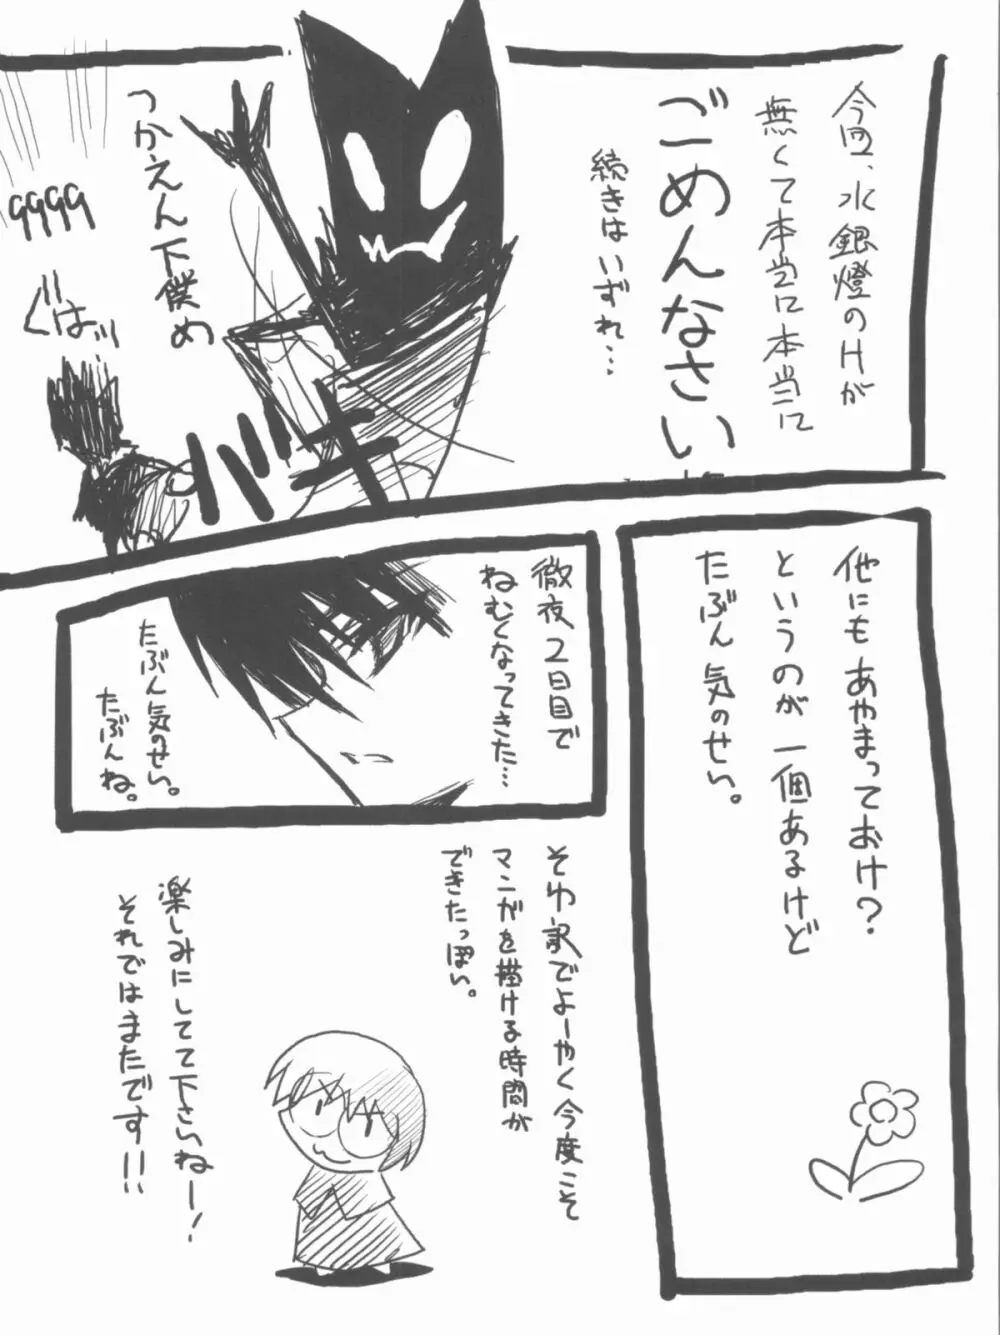 今回、水銀燈のHが
無くて本当に本当に
ごめんなさい
続きはいずれ…
つかえん下僕め
バキ
ぐはッ
9999
他にもあやまっておけ?
というのが一個あるけど
たぶん気のせい。
徹夜2日目で
ねむくなってきた…
たぶん気のせい。
たぶんね。
そわ訳でよーやく今度こそ
マンガを描ける時間が
できたっぽい。
楽しみにしてて下さいねー!
それではまたです!!